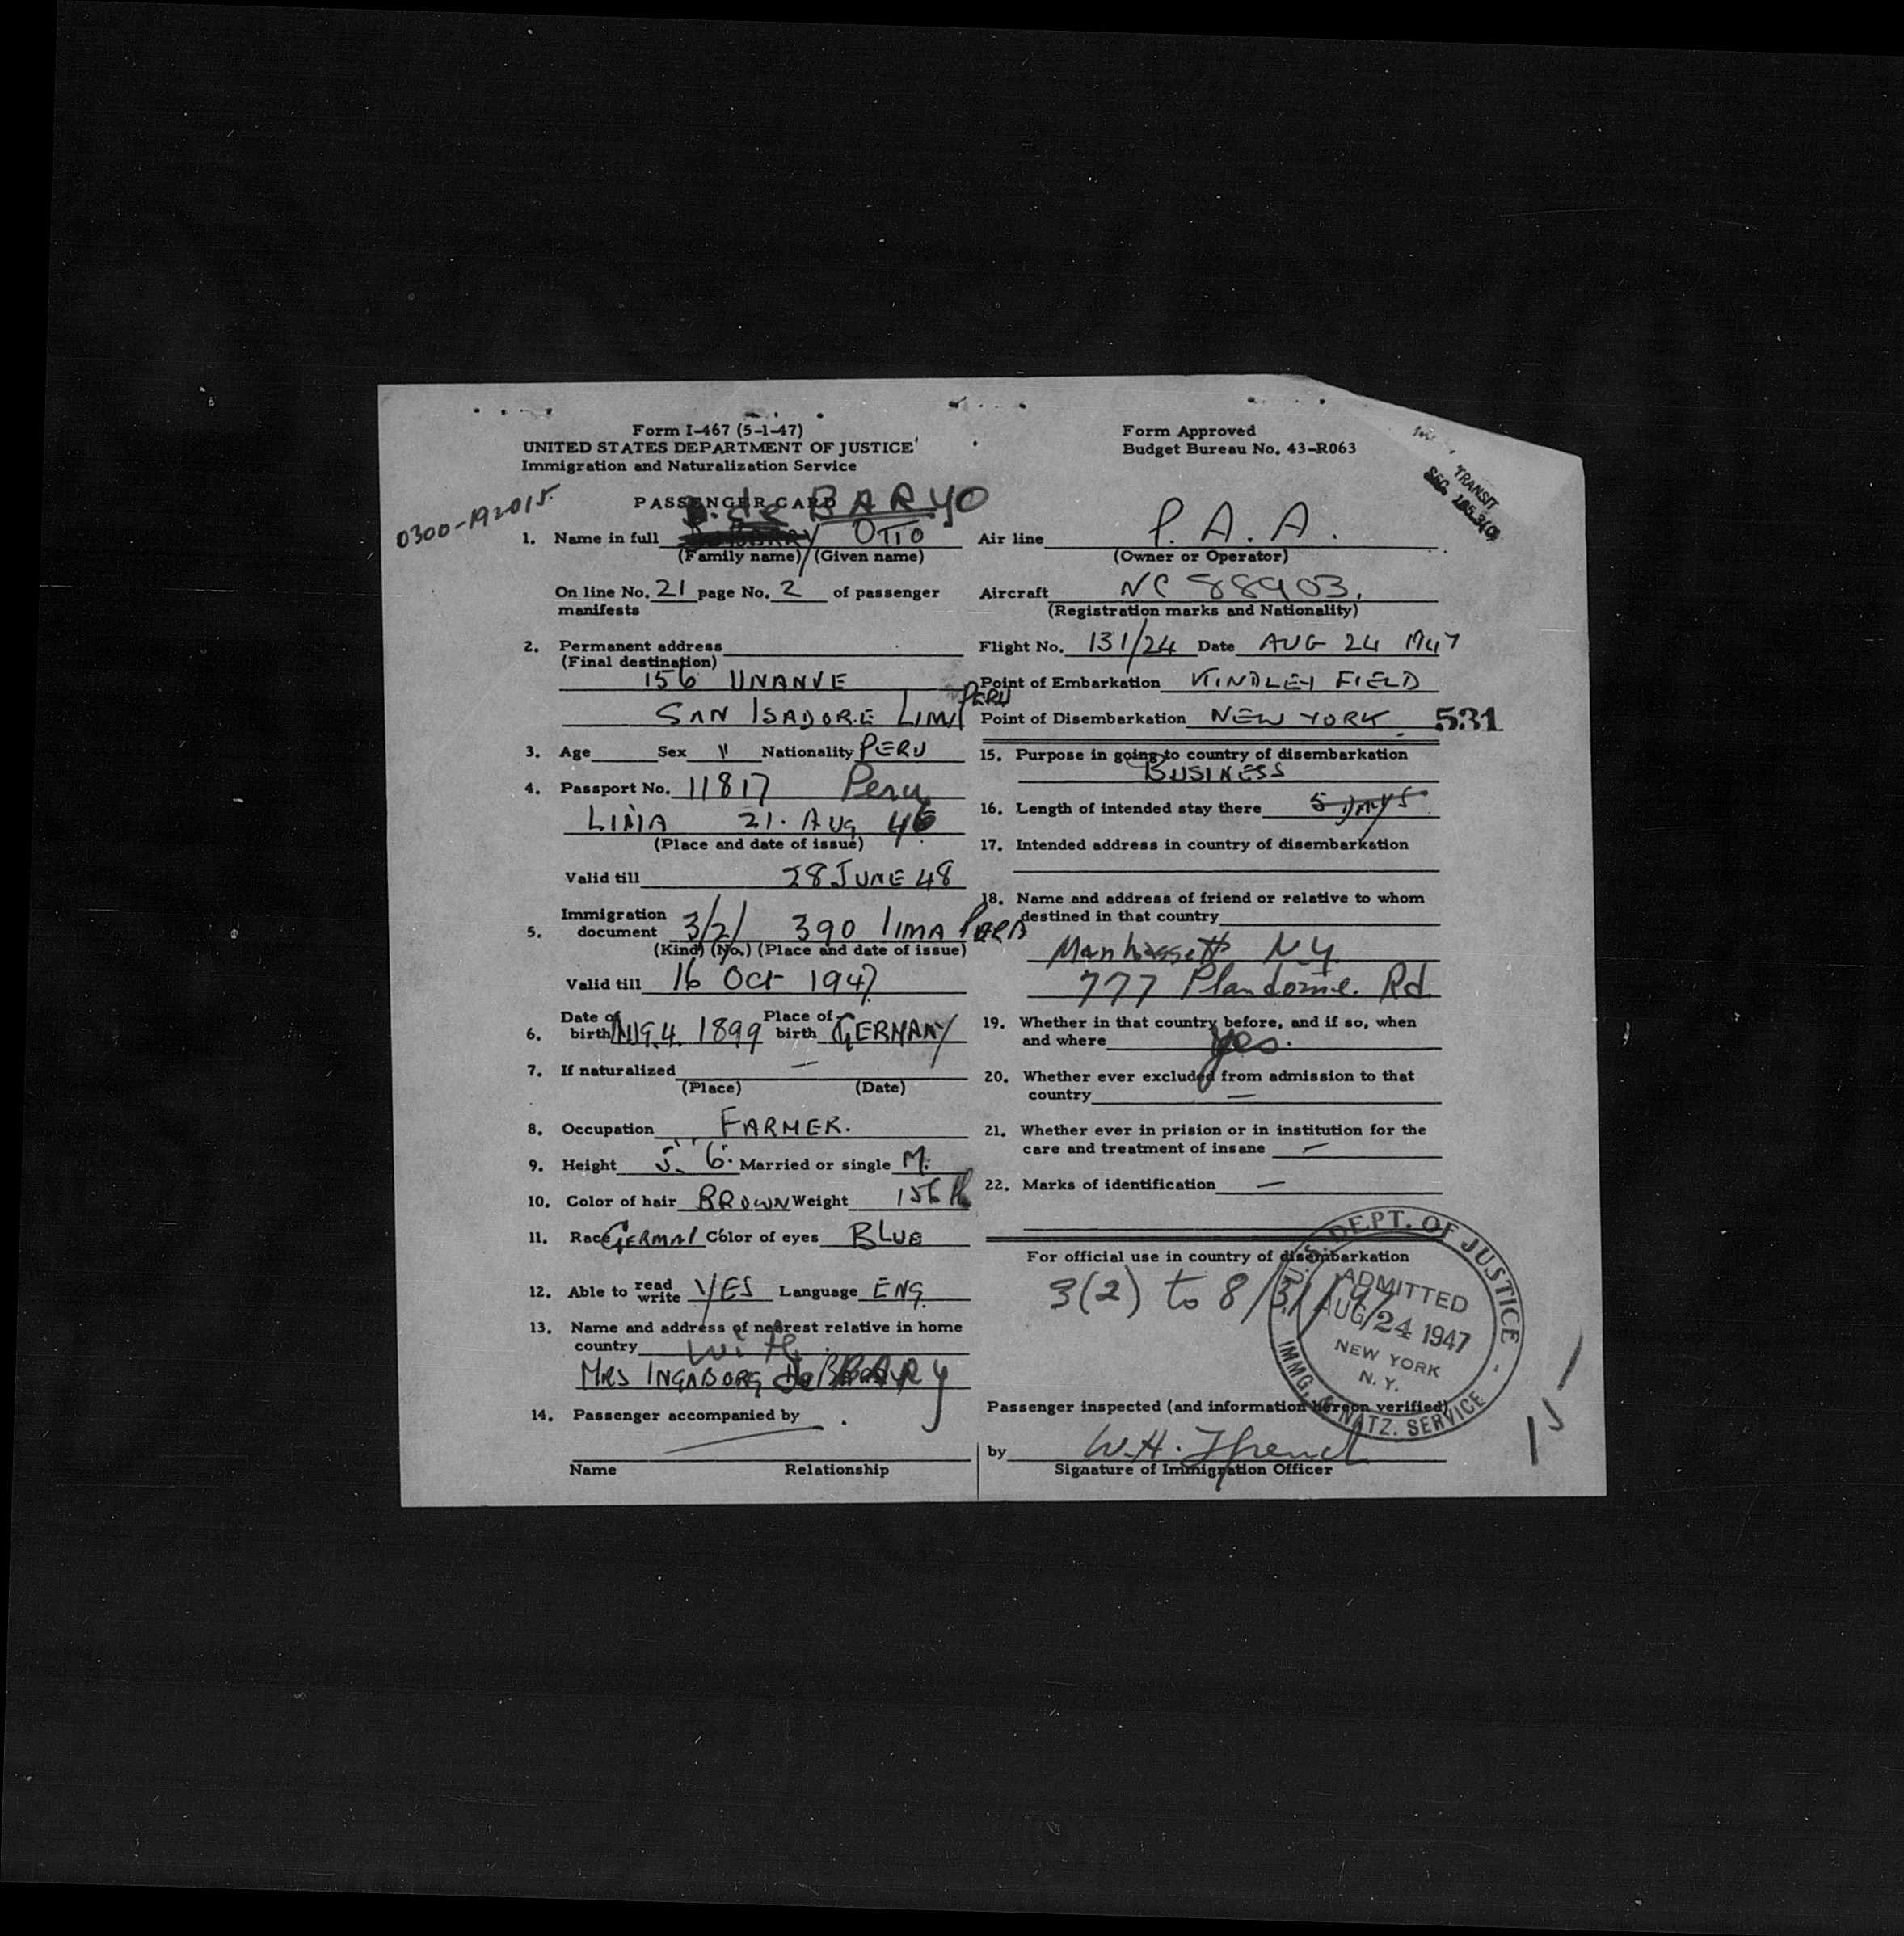 Form I-467 (5-1-47)
UNITED STATES DEPARTMENT OF JUSTICE
Immigration and Naturalization Service
Form Approved
Budget Bureau No. 43-R063
TRANSIT
0300-192015
PASSENGER CARD
de BARYO
1. Name in full OTTO
(Family name) (Given name)
On line No. 21 page No. 2 of passenger
manifests
2. Permanent address
(Final destination)
156 UNANVE
SAN ISADORE LIMA PERU
3. Age Sex Nationality PERU
4. Passport No. 11817 Peru
LIMA 21. AUG 46
(Place and date of issue)
Valid till 28 JUNE 48
5. Immigration document 3/2/ 390 LIMA PERU
(Kind) (No.) (Place and date of issue)
Valid till 16 Oct 1947
6. Date of birth 4. 1899 Place of birth GERMANY
7. If naturalized —
(Place) (Date)
8. Occupation FARMER.
9. Height 5. 6. Married or single M.
10. Color of hair BROWN Weight 156
11. Race GERMAN Color of eyes BLUE
12. Able to read write YES Language ENG.
13. Name and address of nearest relative in home
country
MRS INGABORG de BARY
14. Passenger accompanied by
Name Relationship
Air line P. A. A.
(Owner or Operator)
Aircraft NC 88903.
(Registration marks and Nationality)
Flight No. 131/24 Date AUG 24 1947
Point of Embarkation KINDLEY FIELD
Point of Disembarkation NEW YORK. 531
15. Purpose in going to country of disembarkation
BUSINESS
16. Length of intended stay there 5 DAYS
17. Intended address in country of disembarkation
18. Name and address of friend or relative to whom
destined in that country
Manhassett N.Y.
777 Plandome. Rd.
19. Whether in that country before, and if so, when
and where yes.
20. Whether ever excluded from admission to that
country —
21. Whether ever in prision or in institution for the
care and treatment of insane —
22. Marks of identification —
For official use in country of disembarkation
3(2) to 8/31/47
U.S. DEPT. OF JUSTICE
ADMITTED
AUG 24 1947
NEW YORK
N. Y.
IMMG. & NATZ. SERVICE
Passenger inspected (and information hereon verified)
by W.H. French
Signature of Immigration Officer